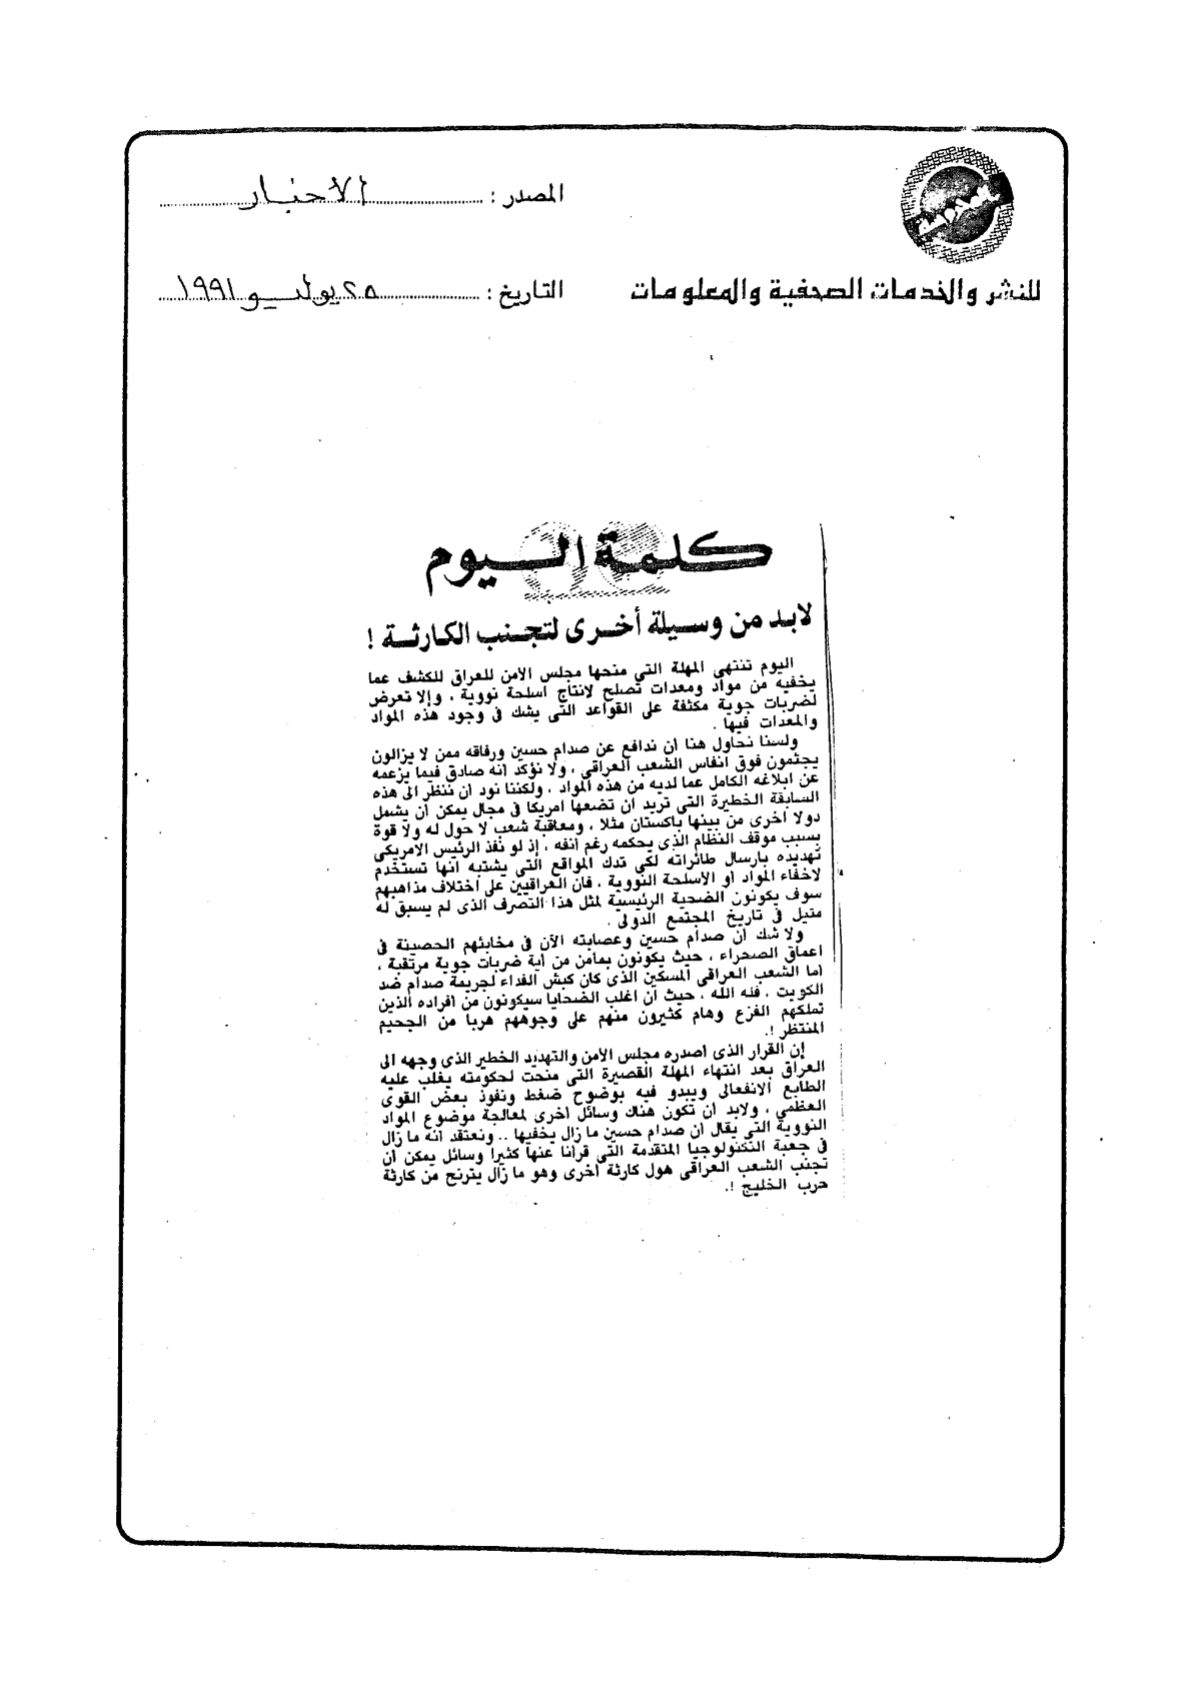 المصدر : الأخبار
للنشر والخدمات الصحفية والمعلومات
التاريخ : ٢٥ يوليو ١٩٩١
كلمة اليوم
لابد من وسيلة أخرى لتجنب الكارثة !
اليوم تنتهى المهلة التى منحها مجلس الأمن للعراق للكشف عما
يخفيه من مواد ومعدات تصلح لانتاج اسلحة نووية ، وإلا تعرض
لضربات جوية مكثفة على القواعد التى يشك فى وجود هذه المواد
والمعدات فيها .
ولسنا نحاول هنا أن ندافع عن صدام حسين ورفاقه ممن لا يزالون
يجثمون فوق انفاس الشعب العراقى ، ولا نؤكد انه صادق فيما يزعمه
عن ابلاغه الكامل عما لديه من هذه المواد ، ولكننا نود أن ننظر الى هذه
السابقة الخطيرة التى تريد ان تضعها امريكا فى مجال يمكن أن يشمل
دولا أخرى من بينها باكستان مثلا ، ومعاقبة شعب لا حول له ولا قوة
بسبب موقف النظام الذى يحكمه رغم أنفه ، إذ لو نفذ الرئيس الامريكى
تهديده بارسال طائراته لكى تدك المواقع التى يشتبه انها تستخدم
لاخفاء المواد او الاسلحة النووية ، فان العراقيين على اختلاف مذاهبهم
سوف يكونون الضحية الرئيسية لمثل هذا التصرف الذى لم يسبق له
مثيل فى تاريخ المجتمع الدولى .
ولا شك أن صدام حسين وعصابته الآن فى مخابئهم الحصينة فى
اعماق الصحراء ، حيث يكونون بمأمن من أية ضربات جوية مرتقبة ،
أما الشعب العراقى المسكين الذى كان كبش الفداء لجريمة صدام ضد
الكويت ، فله الله ، حيث أن اغلب الضحايا سيكونون من افراده الذين
تملكهم الفزع وهام كثيرون منهم على وجوههم هربا من الجحيم
المنتظر !.
إن القرار الذى اصدره مجلس الأمن والتهديد الخطير الذى وجهه الى
العراق بعد انتهاء المهلة القصيرة التى منحت لحكومته يغلب عليه
الطابع الانفعالى ويبدو فيه بوضوح ضغط ونفوذ بعض القوى
العظمى ، ولابد ان تكون هناك وسائل أخرى لمعالجة موضوع المواد
النووية التى يقال أن صدام حسين ما زال يخفيها .. ونعتقد انه ما زال
فى جعبة التكنولوجيا المتقدمة التى قرأنا عنها كثيرا وسائل يمكن أن
تجنب الشعب العراقى هول كارثة أخرى وهو ما زال يترنح من كارثة
حرب الخليج !.